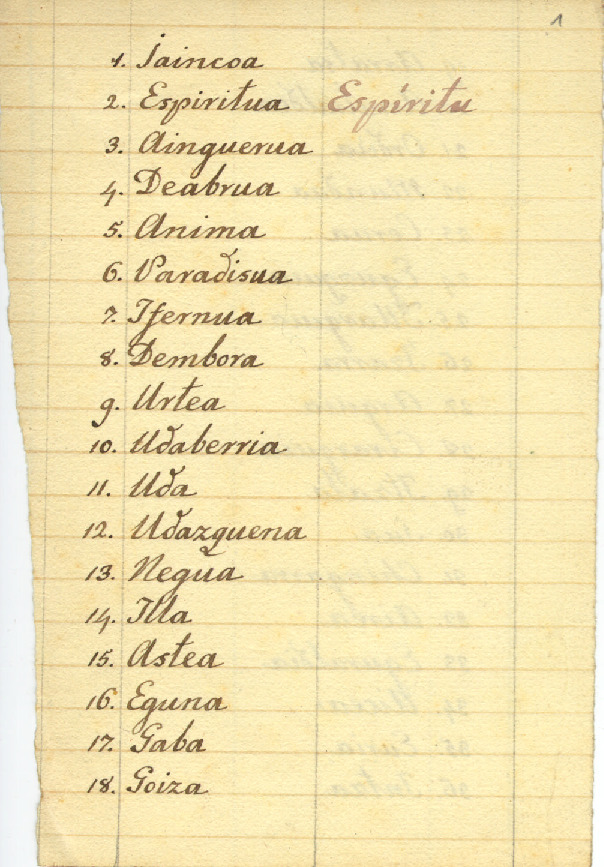 1
1. Jaincoa
2. Espiritua Espíritu
3. Ainguerua
4. Deabrua
5. Anima
6. Paradisua
7. Ifernua
8. Dembora
9. Urtea
10. Udaberria
11. Uda
12. Udazguena
13. Negua
14. Illa
15. Astea
16. Eguna
17. Gaba
18. Goiza